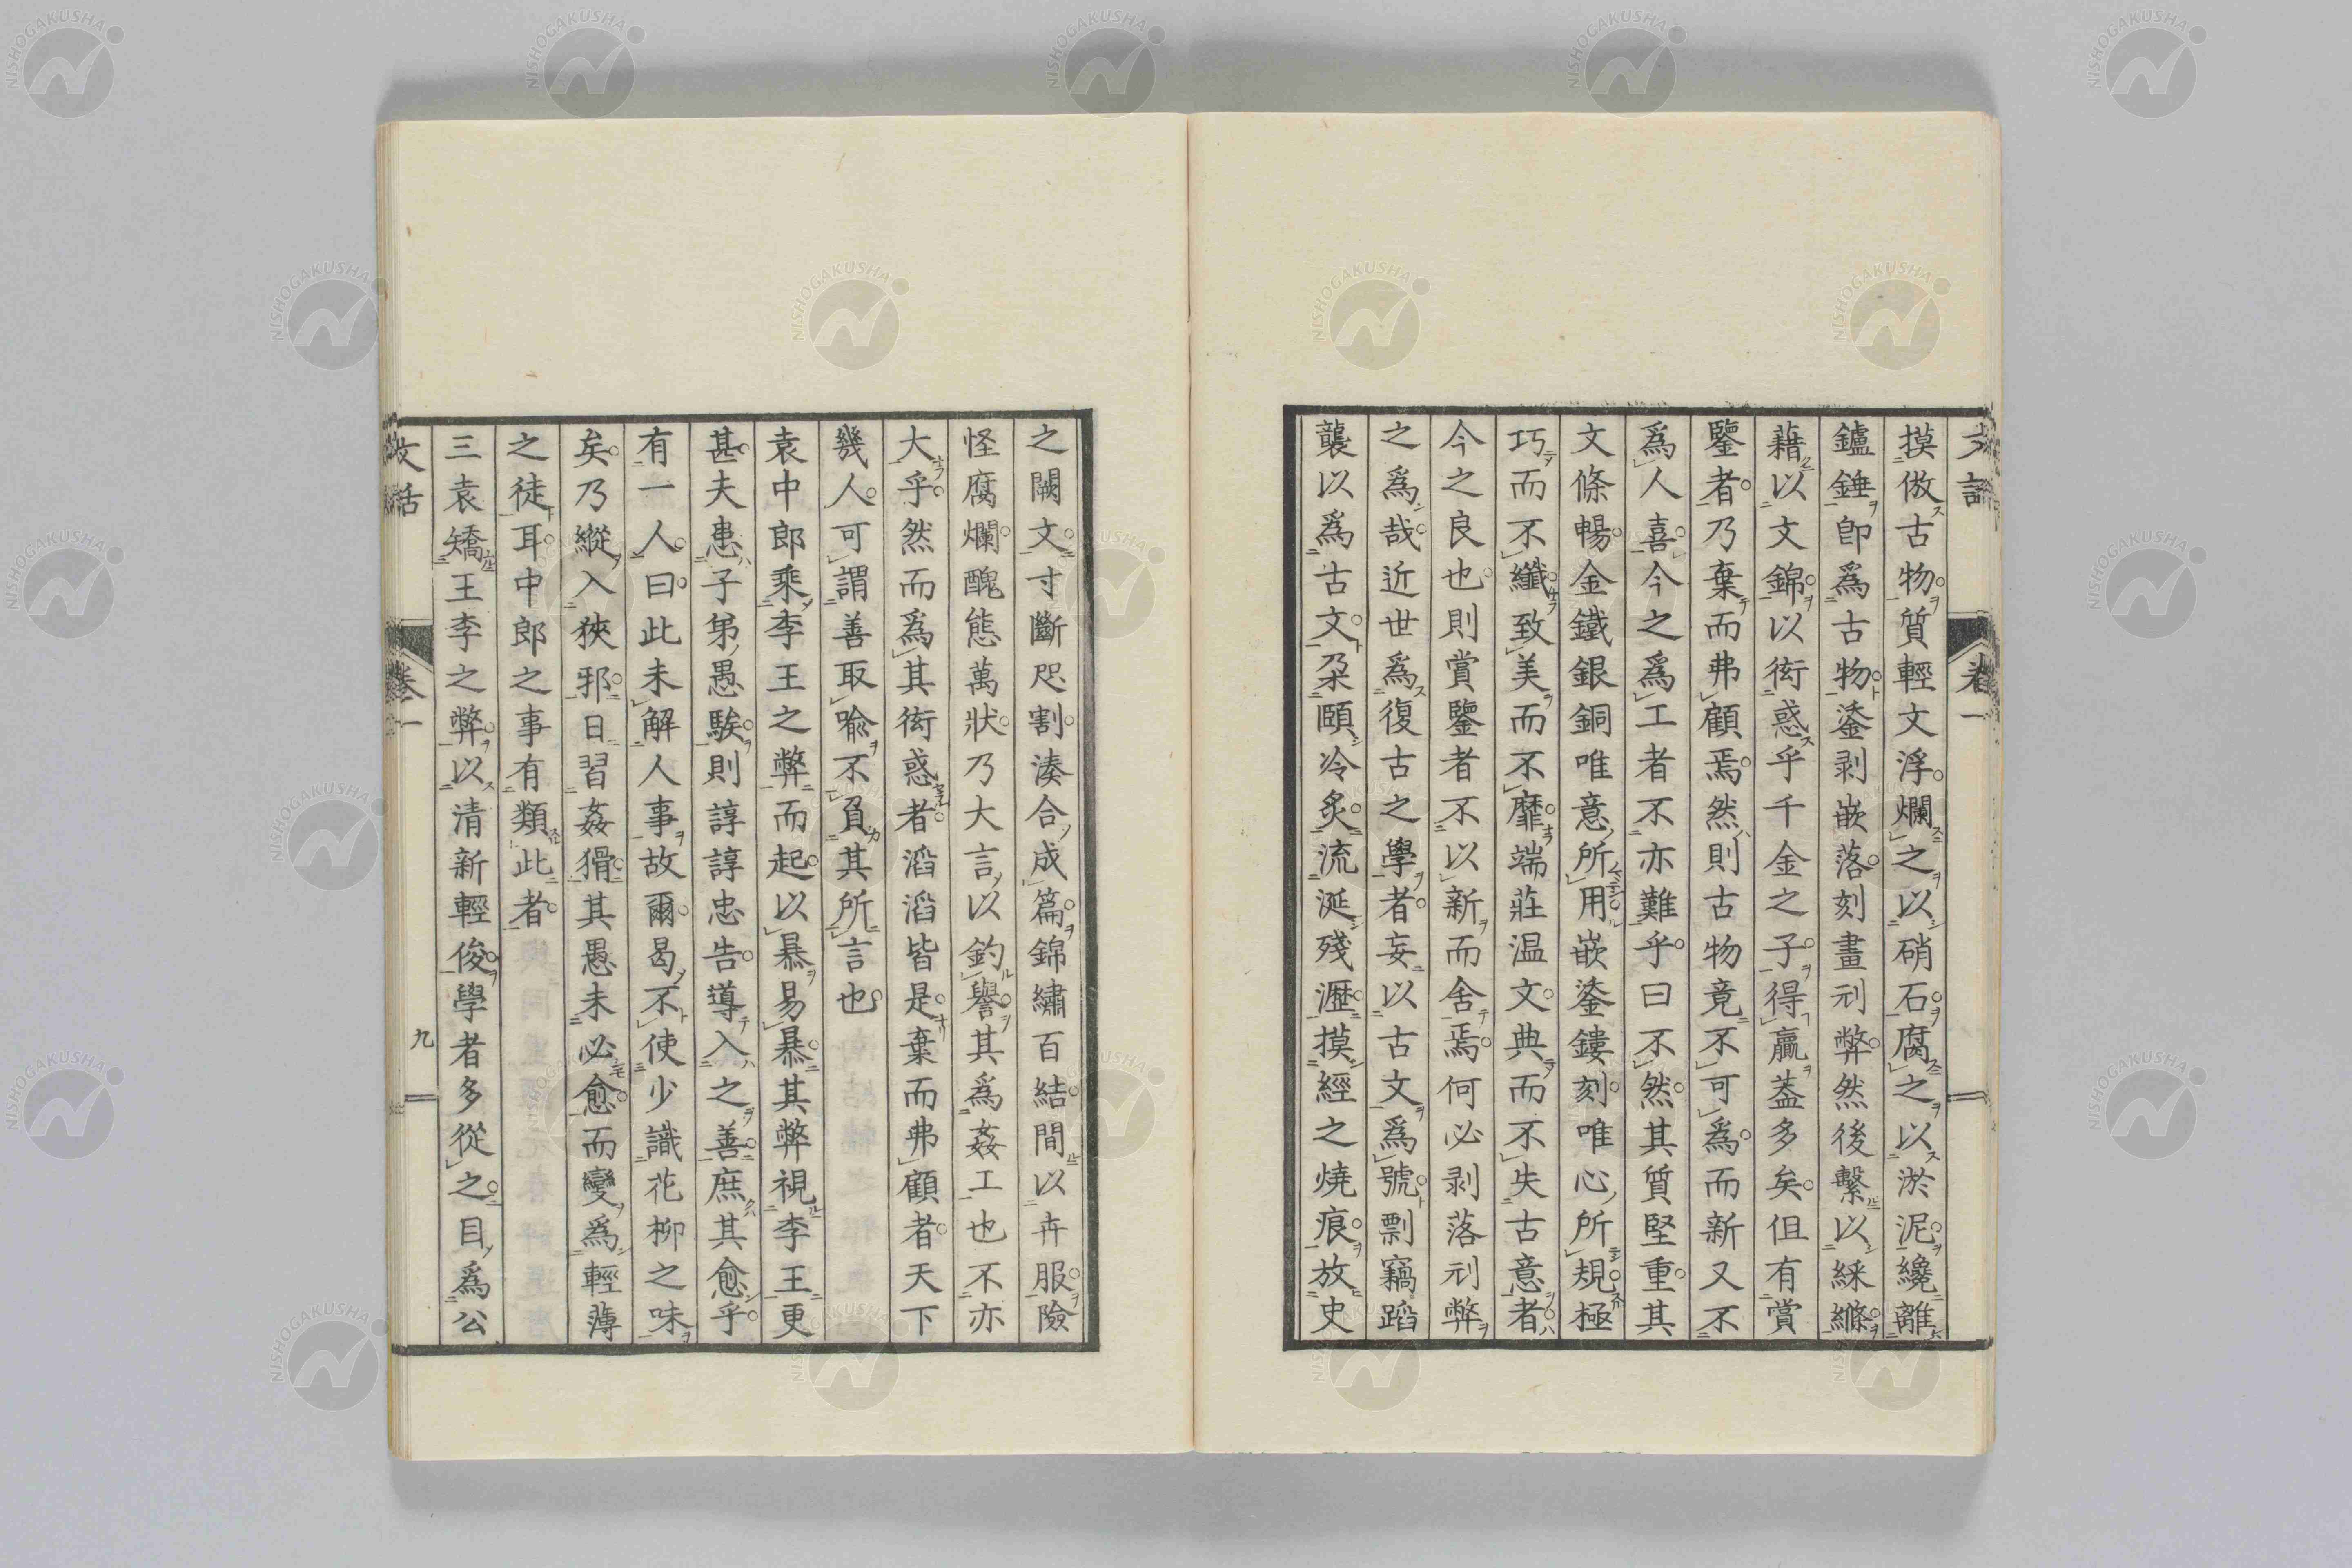 文話 卷一
摸倣古物質輕文浮爛之以硝石腐之以淤泥纔離
鑪錘卽爲古物鋈剥嵌落刻畫刓弊然後繫以綵縧
藉以文錦以衒惑乎千金之子得贏葢多矣但有賞
鑒者乃棄而弗顧焉然則古物竟不可爲而新又不
爲人喜今之爲工者不亦難乎曰不然其質堅重其
文條暢金鐵銀銅唯意所用嵌鋈鏤刻唯心所規極
巧而不纖致美而不靡端莊温文典而不失古意者
今之良也則賞鑒者不以新而舍焉何必剥落刓弊
之爲哉近世爲復古之學者妄以古文爲號剽竊蹈
襲以爲古文朶頤冷炙流涎殘瀝摸經之燒痕放史
之闕文寸斷咫割湊合成篇錦繡百結間以卉服險
怪腐爛醜態萬狀乃大言以釣譽其爲姦工也不亦
大乎然而爲其衒惑者滔滔皆是棄而弗顧者天下
幾人可謂善取喩不負其所言也
袁中郎乘李王之弊而起以暴易暴其弊視李王更
甚夫患子弟愚騃則諄諄忠告導入之善庶其愈乎
有一人曰此未解人事故爾曷不使少識花柳之味
矣乃縱入狹邪日習姦猾其愚未必愈而變爲輕薄
之徒耳中郎之事有類此者
三袁矯王李之弊以清新輕俊學者多從之目爲公
文話 卷一 九
NISHOGAKUSHA